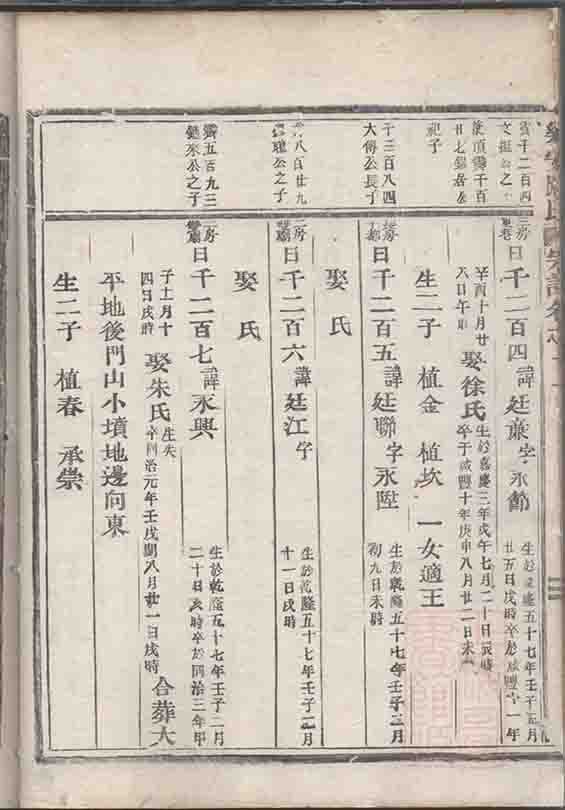 氏宗譜卷之
三房
日千二百四 諱廷廉字永節
生於乾隆五十七年壬子三月
廿五日戌時卒於咸豐十一年
辛酉十月廿
八日午時
娶徐氏
生於嘉慶三年戊午七月二十日戌時
卒于咸豐十年庚申八月廿二日未
生二子 植金 植坎 一女適王
千三百八四
大傳公長子
日千二百五 諱廷聯字永陞
生於乾隆五十七年壬子三月
初九日未時
娶氏
八百廿九
公之子
二房
日千二百六 諱廷江字
生於乾隆五十七年壬子二月
十一日戌時
娶氏
五百九三
公之子
二房
日千二百七 諱永興
生於乾隆五十七年壬子二月
二十日亥時卒於同治三年甲
子十二月十
四日戌時
娶朱氏
生失
卒同治元年壬戌閏八月廿一日戌時
合葬大
平地後門山小墳地邊向東
生二子 植春 承崇